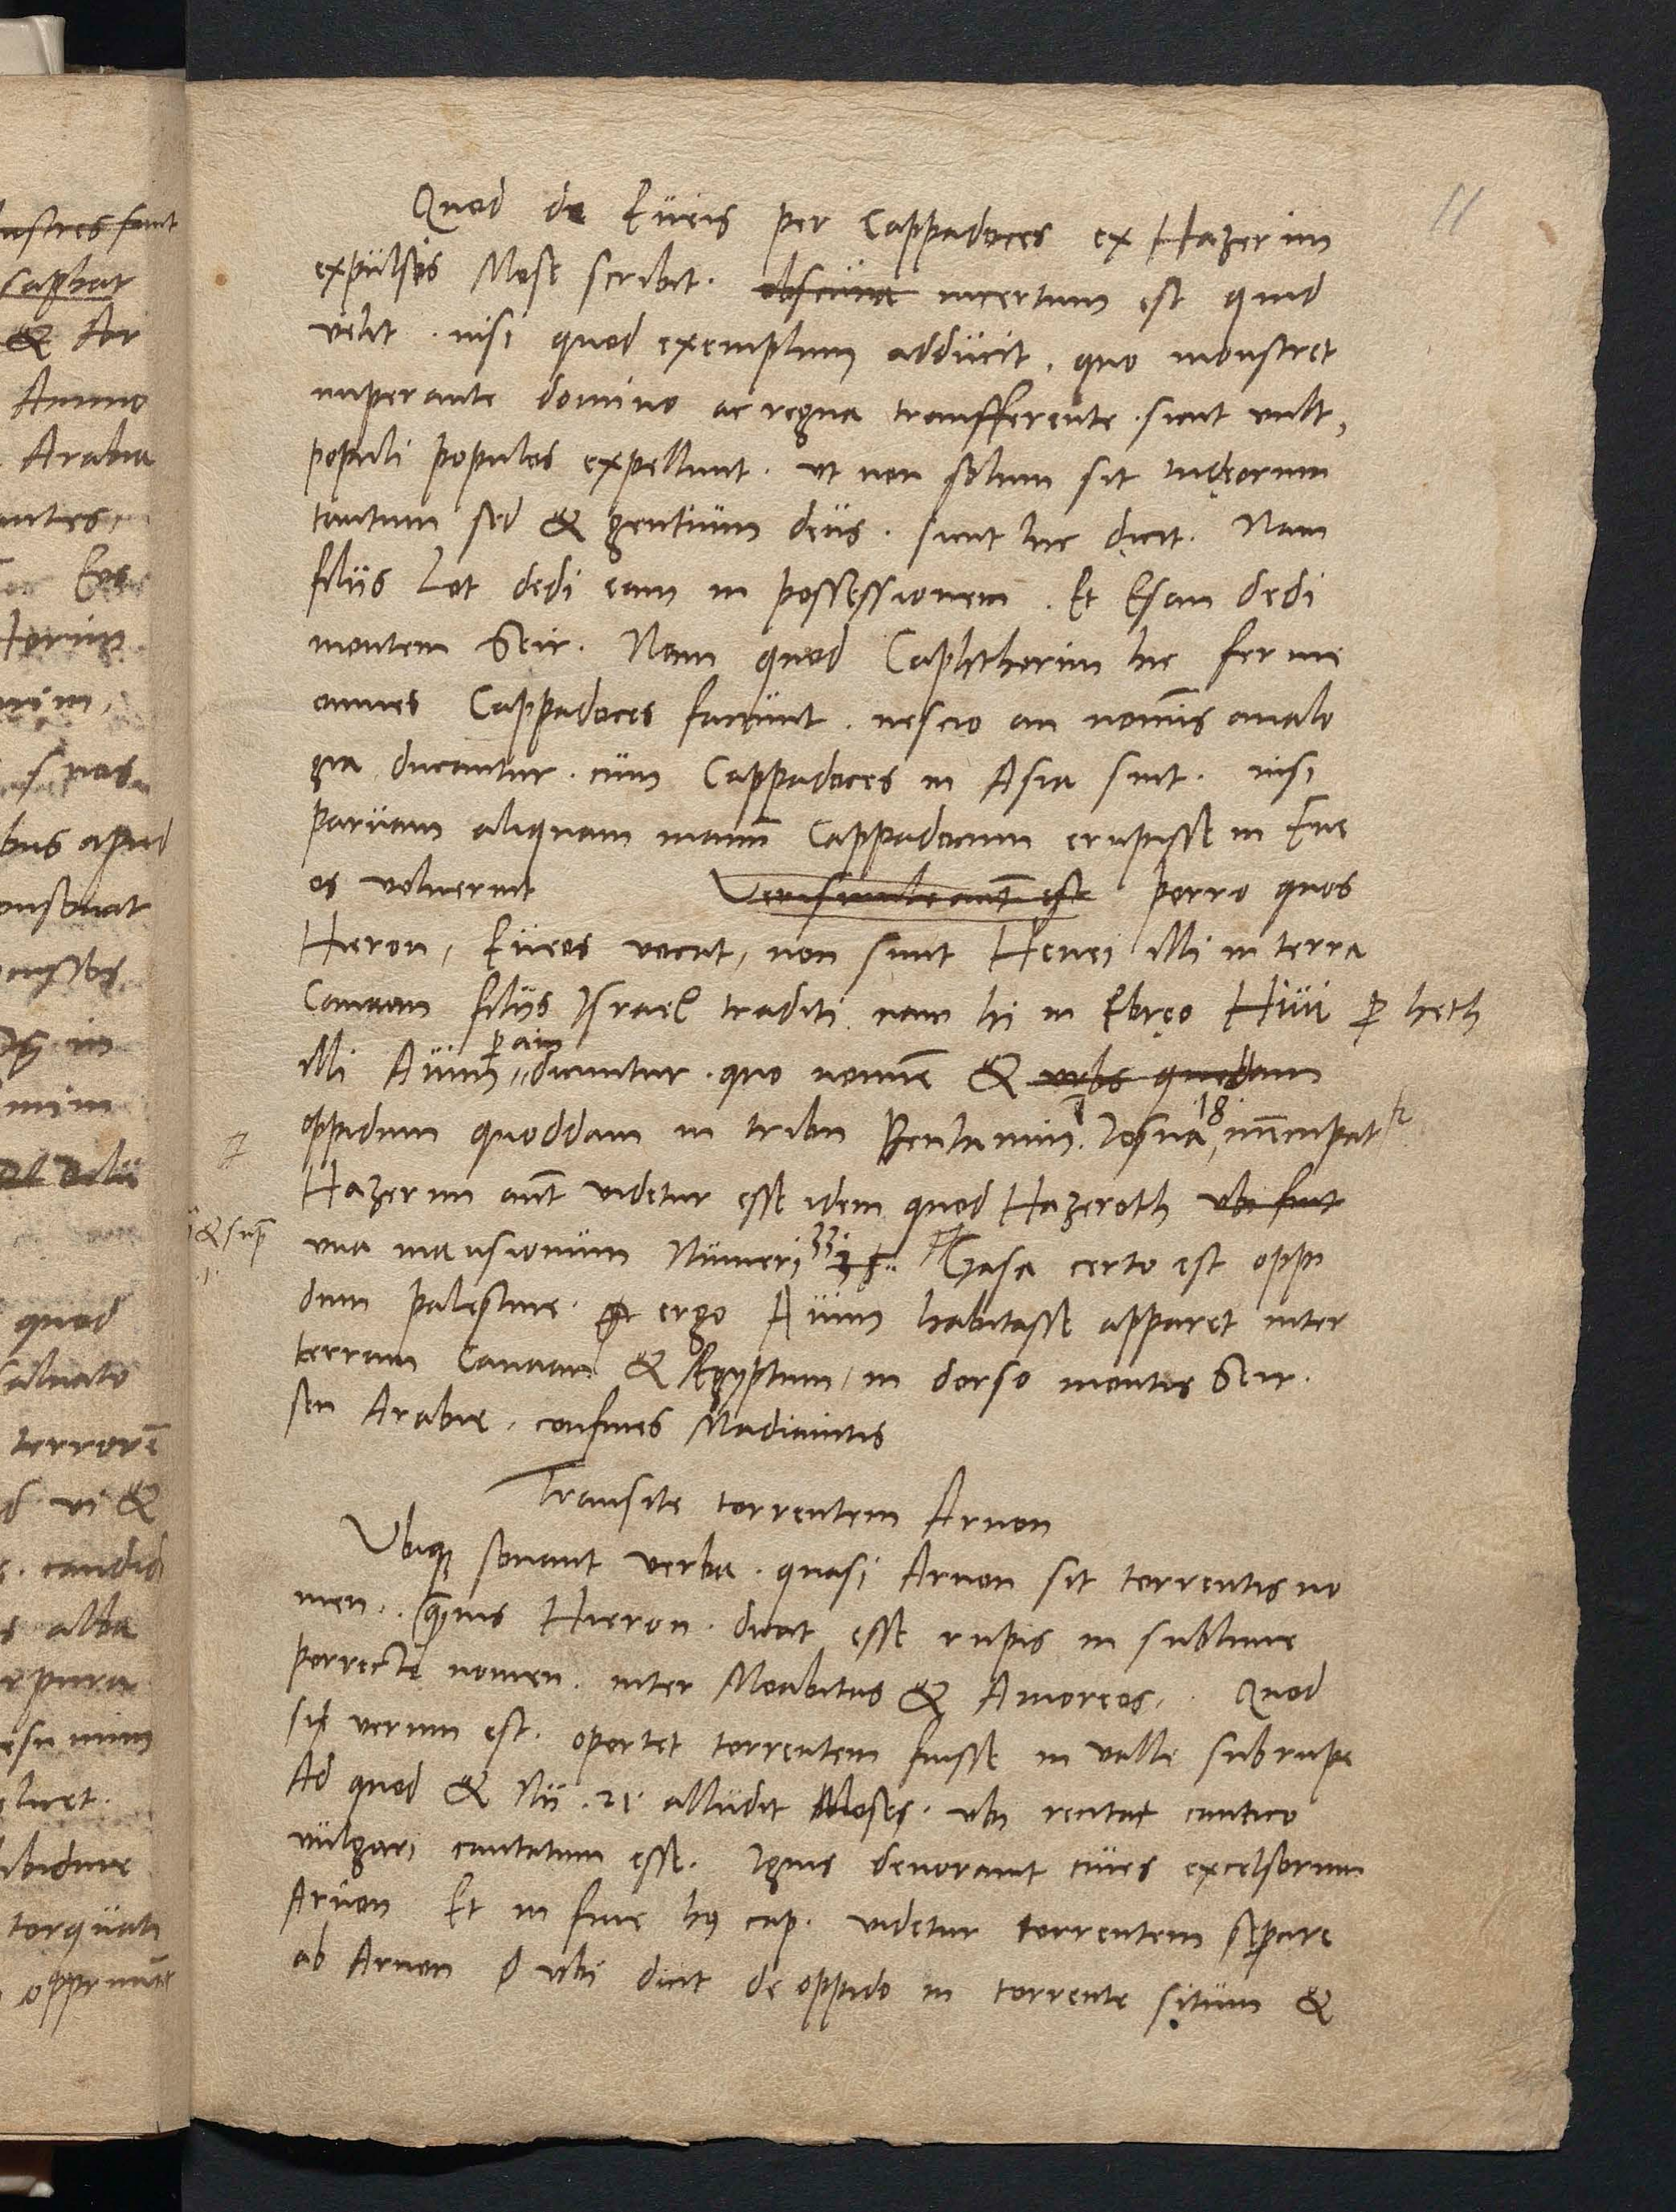 11
Quod de Eueis per Cappadoces ex Hazerim
expulsis Mose scribit. obscura incertum est quid
velit . nisi quod exemplum adducit, quo monstret
imperante domino ac regna transfferente . sicut vult,
populi populos expellunt. vt non solum sit Iudęorum
tantum sed & gentium deus. sicut hic dicit. Nam
filiis Lot dedi eam in possessionem. Et Esau dedi
montem Seir. Nam quod Caphthorim hic ferme
omnes Cappadoces faciunt. nescio an nominis analo
gia ducantur. cum Cappadoces in Asia sint. nisi
paruam aliquam manum Cappadocum erupisse in Eue
os voluerint Verisimile aut est porro quos
Hieron, Eueos vocat, non sunt Heuei illi in terra
Canaan filiis Israel traditi nam hi in Ebręo Hiui p heth
illi Auim p ain dicuntur. quo nomine & vrbs quedam
oppidum quoddam in tribu BenIamin. Iosua 18 nuncupat
Hazerim aut videtur esse idem quod Hazeroth vbi fuit
& sup
vna mansionum Numeri 33 Gasa certo est oppi
dum palęstine. ergo Auim habitasse apparet inter
terram Canaan & Aegyptum, in dorso montis Seir.
seu Arabię, confines Madianitis
Transite torrentem Arnon
Vbiq sonant verba. quasi Arnon sit torrentis no
men. quis Hieron. dicat esse rupis in sublime
porrectę nomen. inter Moabitas & Amoreos. Quod
si verum est. oportet torrentem fuisse in valle sub rupe
Ad quod & Nu. 21 alludit Moses. vbi recitat cantico
vulgari cantatum esse. Ignis deuorauit ciues excelsorum
Arnon Et in fine hq cap. videtur torrentem separe
ab Arnon vbi dicit de oppido in torrente situm &